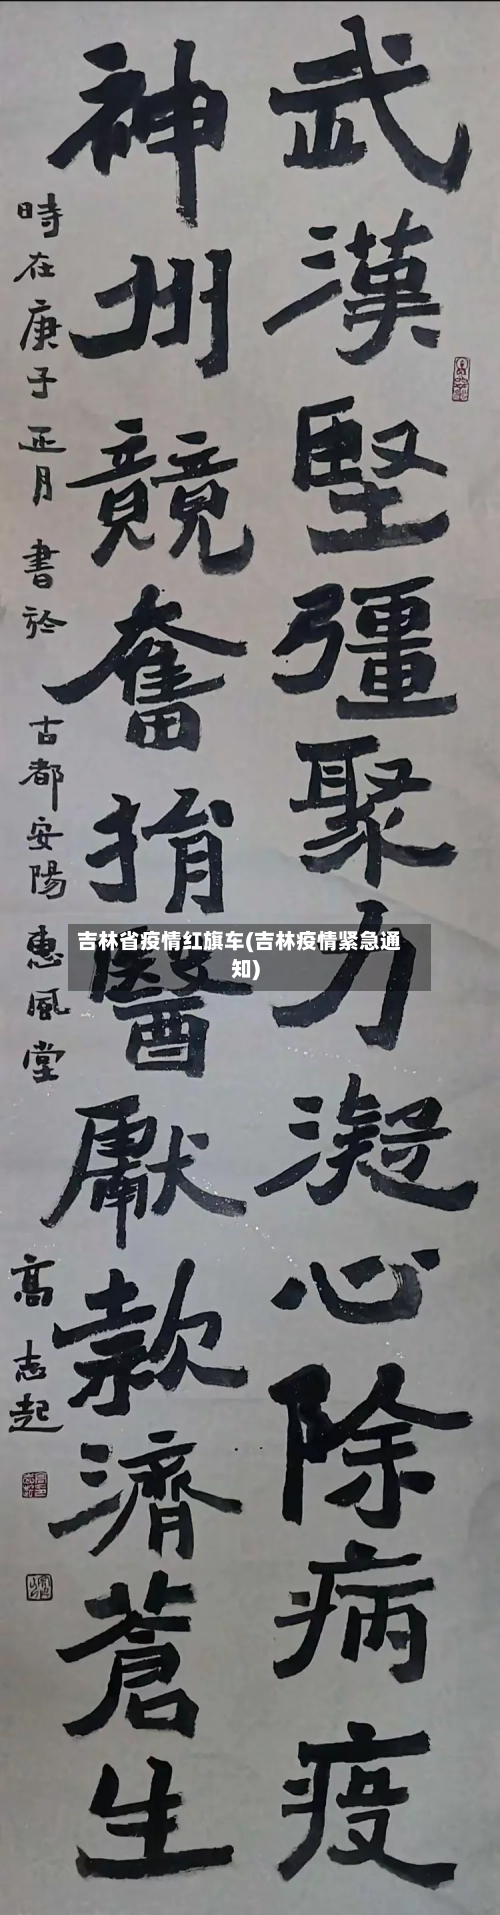 武漢堅彊聚力凝心除病疫
神州競奮捐醫獻款濟蒼生
時在庚子正月書於古都安陽惠風堂
高志起
吉林省疫情红旗车(吉林疫情紧急通
知)